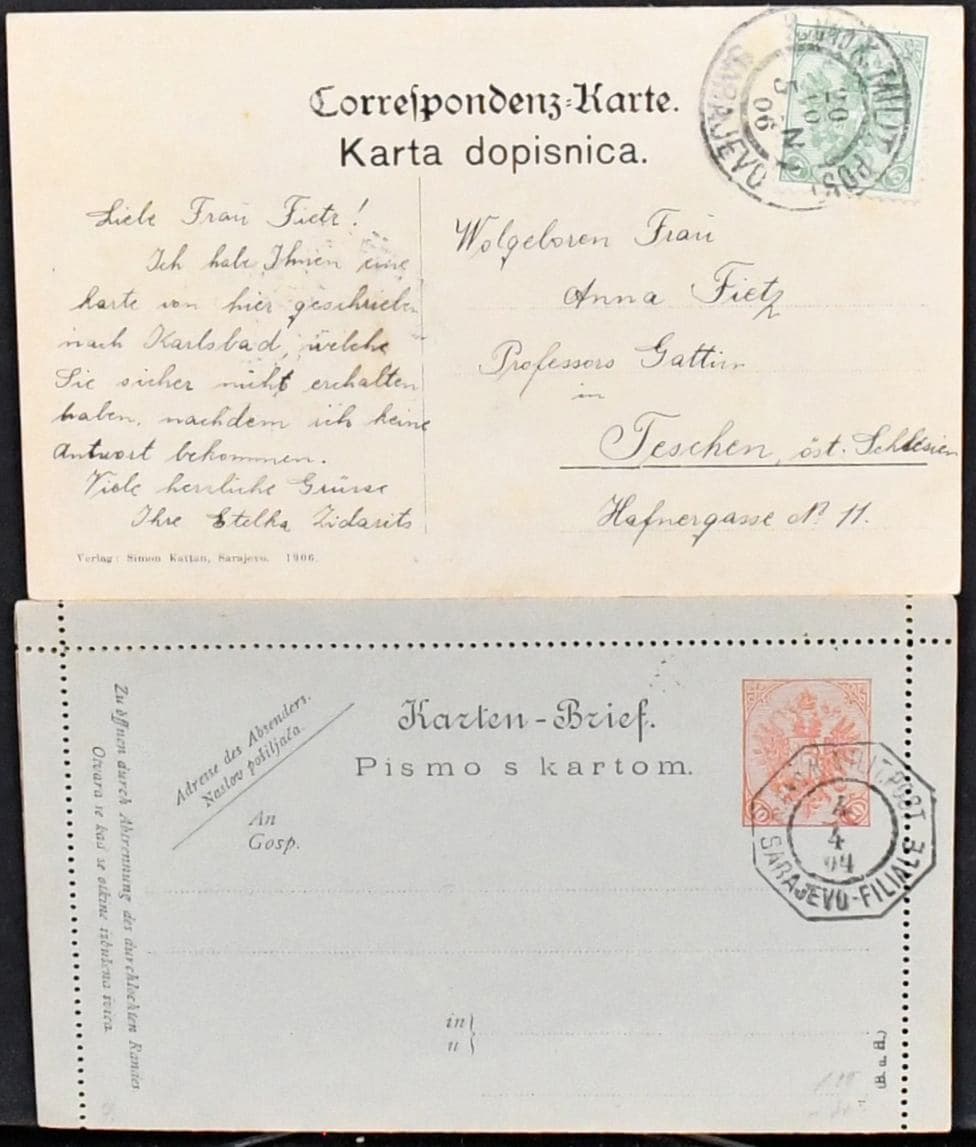 Correspondenz-Karte.
Karta dopisnica.
K. UND K. MILIT. POST
SARAJEVO
20
10
06
5
5
Liebe Frau Fietz!
Ich habe Ihnen eine
Karte von hier geschrieben
nach Karlsbad, welche
Sie sicher nicht erchalten
haben, nachdem ich keine
Antwort bekommen.
Viele herzliche Grüsse
Ihre Etelka Zidarits
Wolgeboren Frau
Anna Fietz
Professors Gattin
in
Teschen, öst. Schlesien
Hafnergasse No 11.
Verlag: Simon Kattan, Sarajevo. 1906.
Zu öffnen durch Abtrennung des durchlochten Randes
Otvara se kad se otkine izbušena ivica.
Adresse des Absenders.
Naslov pošiljača.
Karten-Brief.
Pismo s kartom.
An
Gosp.
10
10
K. UND K. MILIT. POST
4
4
94
SARAJEVO-FILIALE
in
u
(B. a. H.)